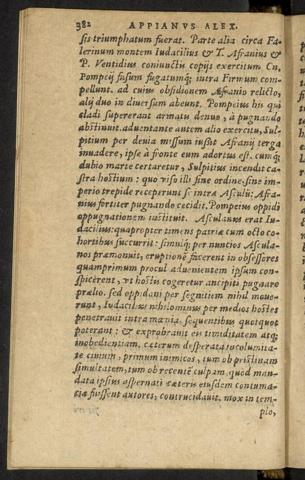 382 APPIANVS ALEX.
sis triumphatum fuerat. Parte alia circa Fa-
lerinum montem Iudacilius & T. Afranius &
P. Ventidius coniunctis copijs exercitum Cn.
Pompeij fusum fugatumq; intra Firmum com-
pellunt. ad cuius obsidionem Afranio relicto,
alij duo in diuersum abeunt. Pompeius his qui
cladi supererant armatu denuo, à pugnando
abstinuit. aduentante autem alio exercitu, Sul-
pitium per deuia missum iussit Afranij terga
inuadere, ipse à fronte eum adortus est. cumq;
dubio marte certaretur, Sulpitius incendit ca-
stra hostium: quo viso illi sine ordine, sine im-
perio trepide receperunt se intra Asculū: Afra-
nius fortiter pugnando cecidit. Pompeius oppidi
oppugnationem instituit. Asculanus erat Iu-
dacilius: quapropter timens patriæ cum octo co-
hortibus succurrit: simulq; per nuncios Ascula-
nos præmonuit, eruptionē facerent in obsessores
quamprimum procul aduenientem ipsum con-
spicerent, vt hostis cogeretur ancipiti pugnare
prælio. sed oppidani per segnitiem nihil moue-
runt, Iudacilius nihilominus per medios hostes
penetrauit intra mœnia, sequentibus quotquot
poterant: & exprobrauit eis timiditatem atq;
inobedientiam. cæterum desperata incolumita-
te ciuium, primum inimicos, tum ob pristinam
simultatem, tum ob recentē culpam, quòd man-
data ipsius aspernati cæteris eiusdem contuma-
ciæ fuissent autores, contrucidauit. mox in tem-
plo,